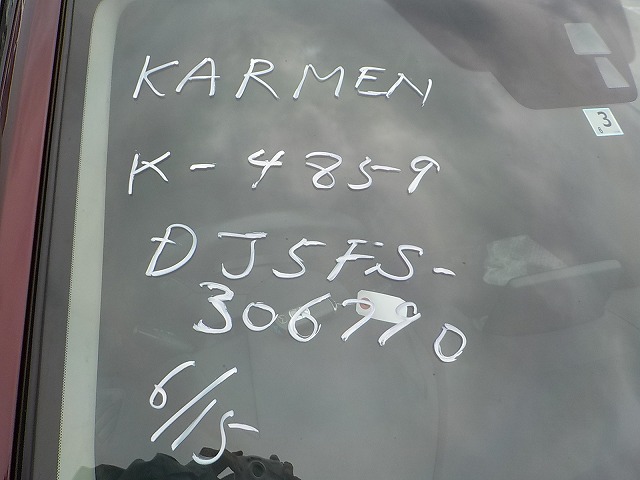 KARMEN
K-4859
DJ5FS-
306990
6/15
3